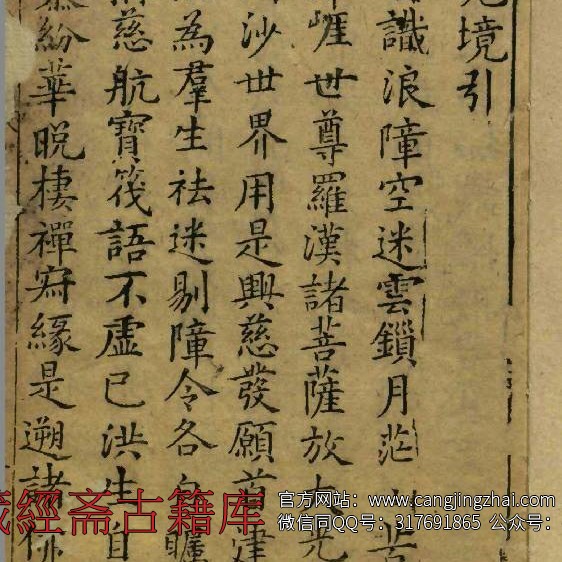 境引
識浪障空迷雲鎖月茫
崖世尊羅漢諸菩薩放
沙世界用是興慈發願首建
為羣生祛迷剔障令各
慈航寶筏語不虛已洪生自
紛華晚棲禪寂緣是遡諸佛
經斋古籍库
官方网站：www.cangjingzhai.com
微信同QQ号：317691865 公众号：